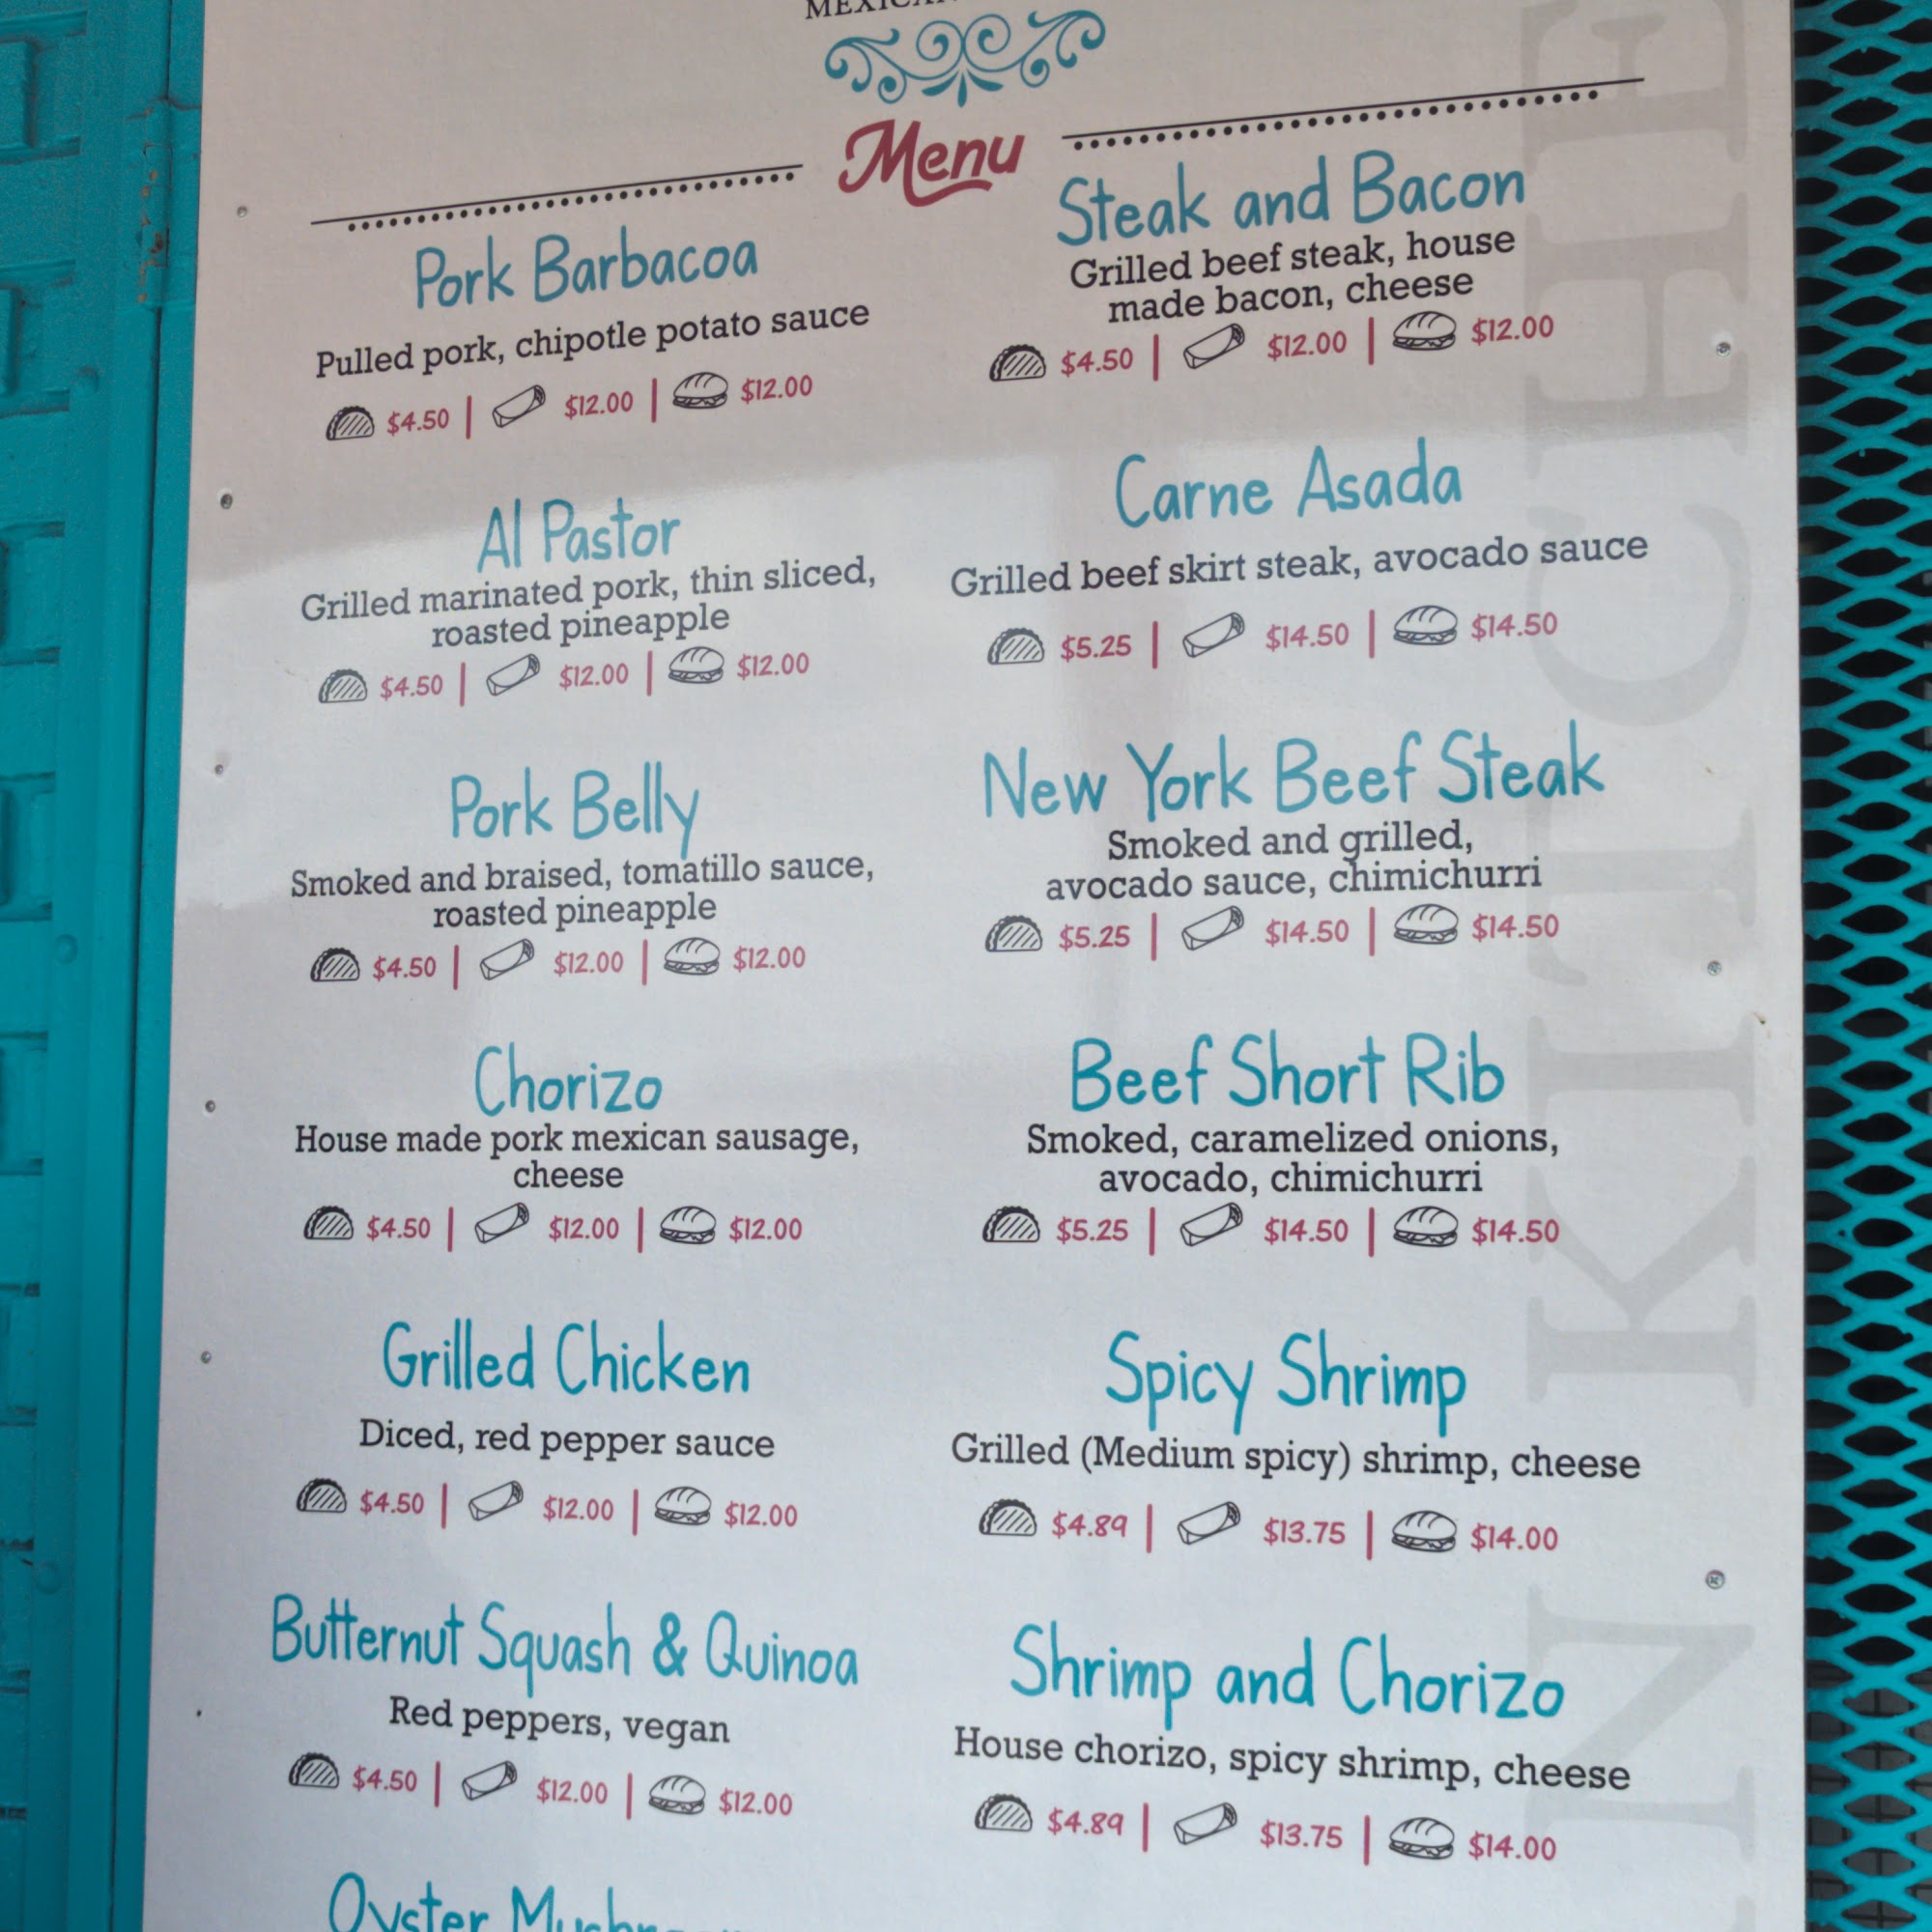 Menu
Pork Barbacoa
Pulled pork, chipotle potato sauce
$4.50 | $12.00 | $12.00
Al Pastor
Grilled marinated pork, thin sliced,
roasted pineapple
$4.50 | $12.00 | $12.00
Pork Belly
Smoked and braised, tomatillo sauce,
roasted pineapple
$4.50 | $12.00 | $12.00
Chorizo
House made pork mexican sausage,
cheese
$4.50 | $12.00 | $12.00
Grilled Chicken
Diced, red pepper sauce
$4.50 | $12.00 | $12.00
Butternut Squash & Quinoa
Red peppers, vegan
$4.50 | $12.00 | $12.00
Oyster
Steak and Bacon
Grilled beef steak, house
made bacon, cheese
$4.50 | $12.00 | $12.00
Carne Asada
Grilled beef skirt steak, avocado sauce
$5.25 | $14.50 | $14.50
New York Beef Steak
Smoked and grilled,
avocado sauce, chimichurri
$5.25 | $14.50 | $14.50
Beef Short Rib
Smoked, caramelized onions,
avocado, chimichurri
$5.25 | $14.50 | $14.50
Spicy Shrimp
Grilled (Medium spicy) shrimp, cheese
$4.89 | $13.75 | $14.00
Shrimp and Chorizo
House chorizo, spicy shrimp, cheese
$4.89 | $13.75 | $14.00
N KITCHE